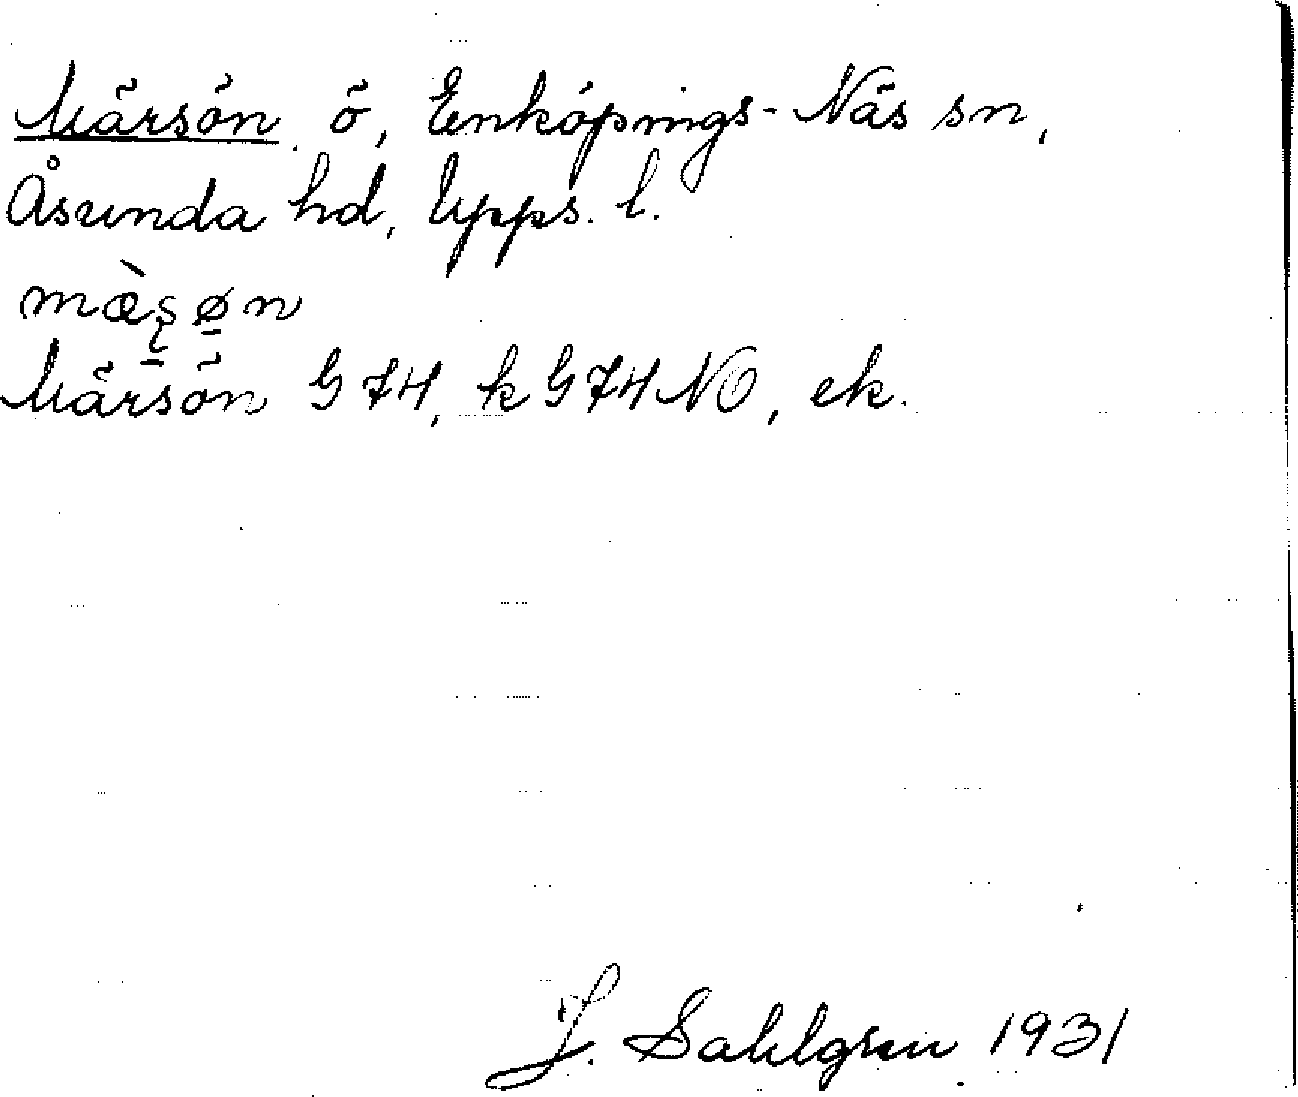 Märsön ö, Enköpings-Näs sn,
Åsunda hd, Upps. l.
mæ̀ʂøn
Märsön G 74, k G 74 NO, ek.
J. Sahlgren 1931